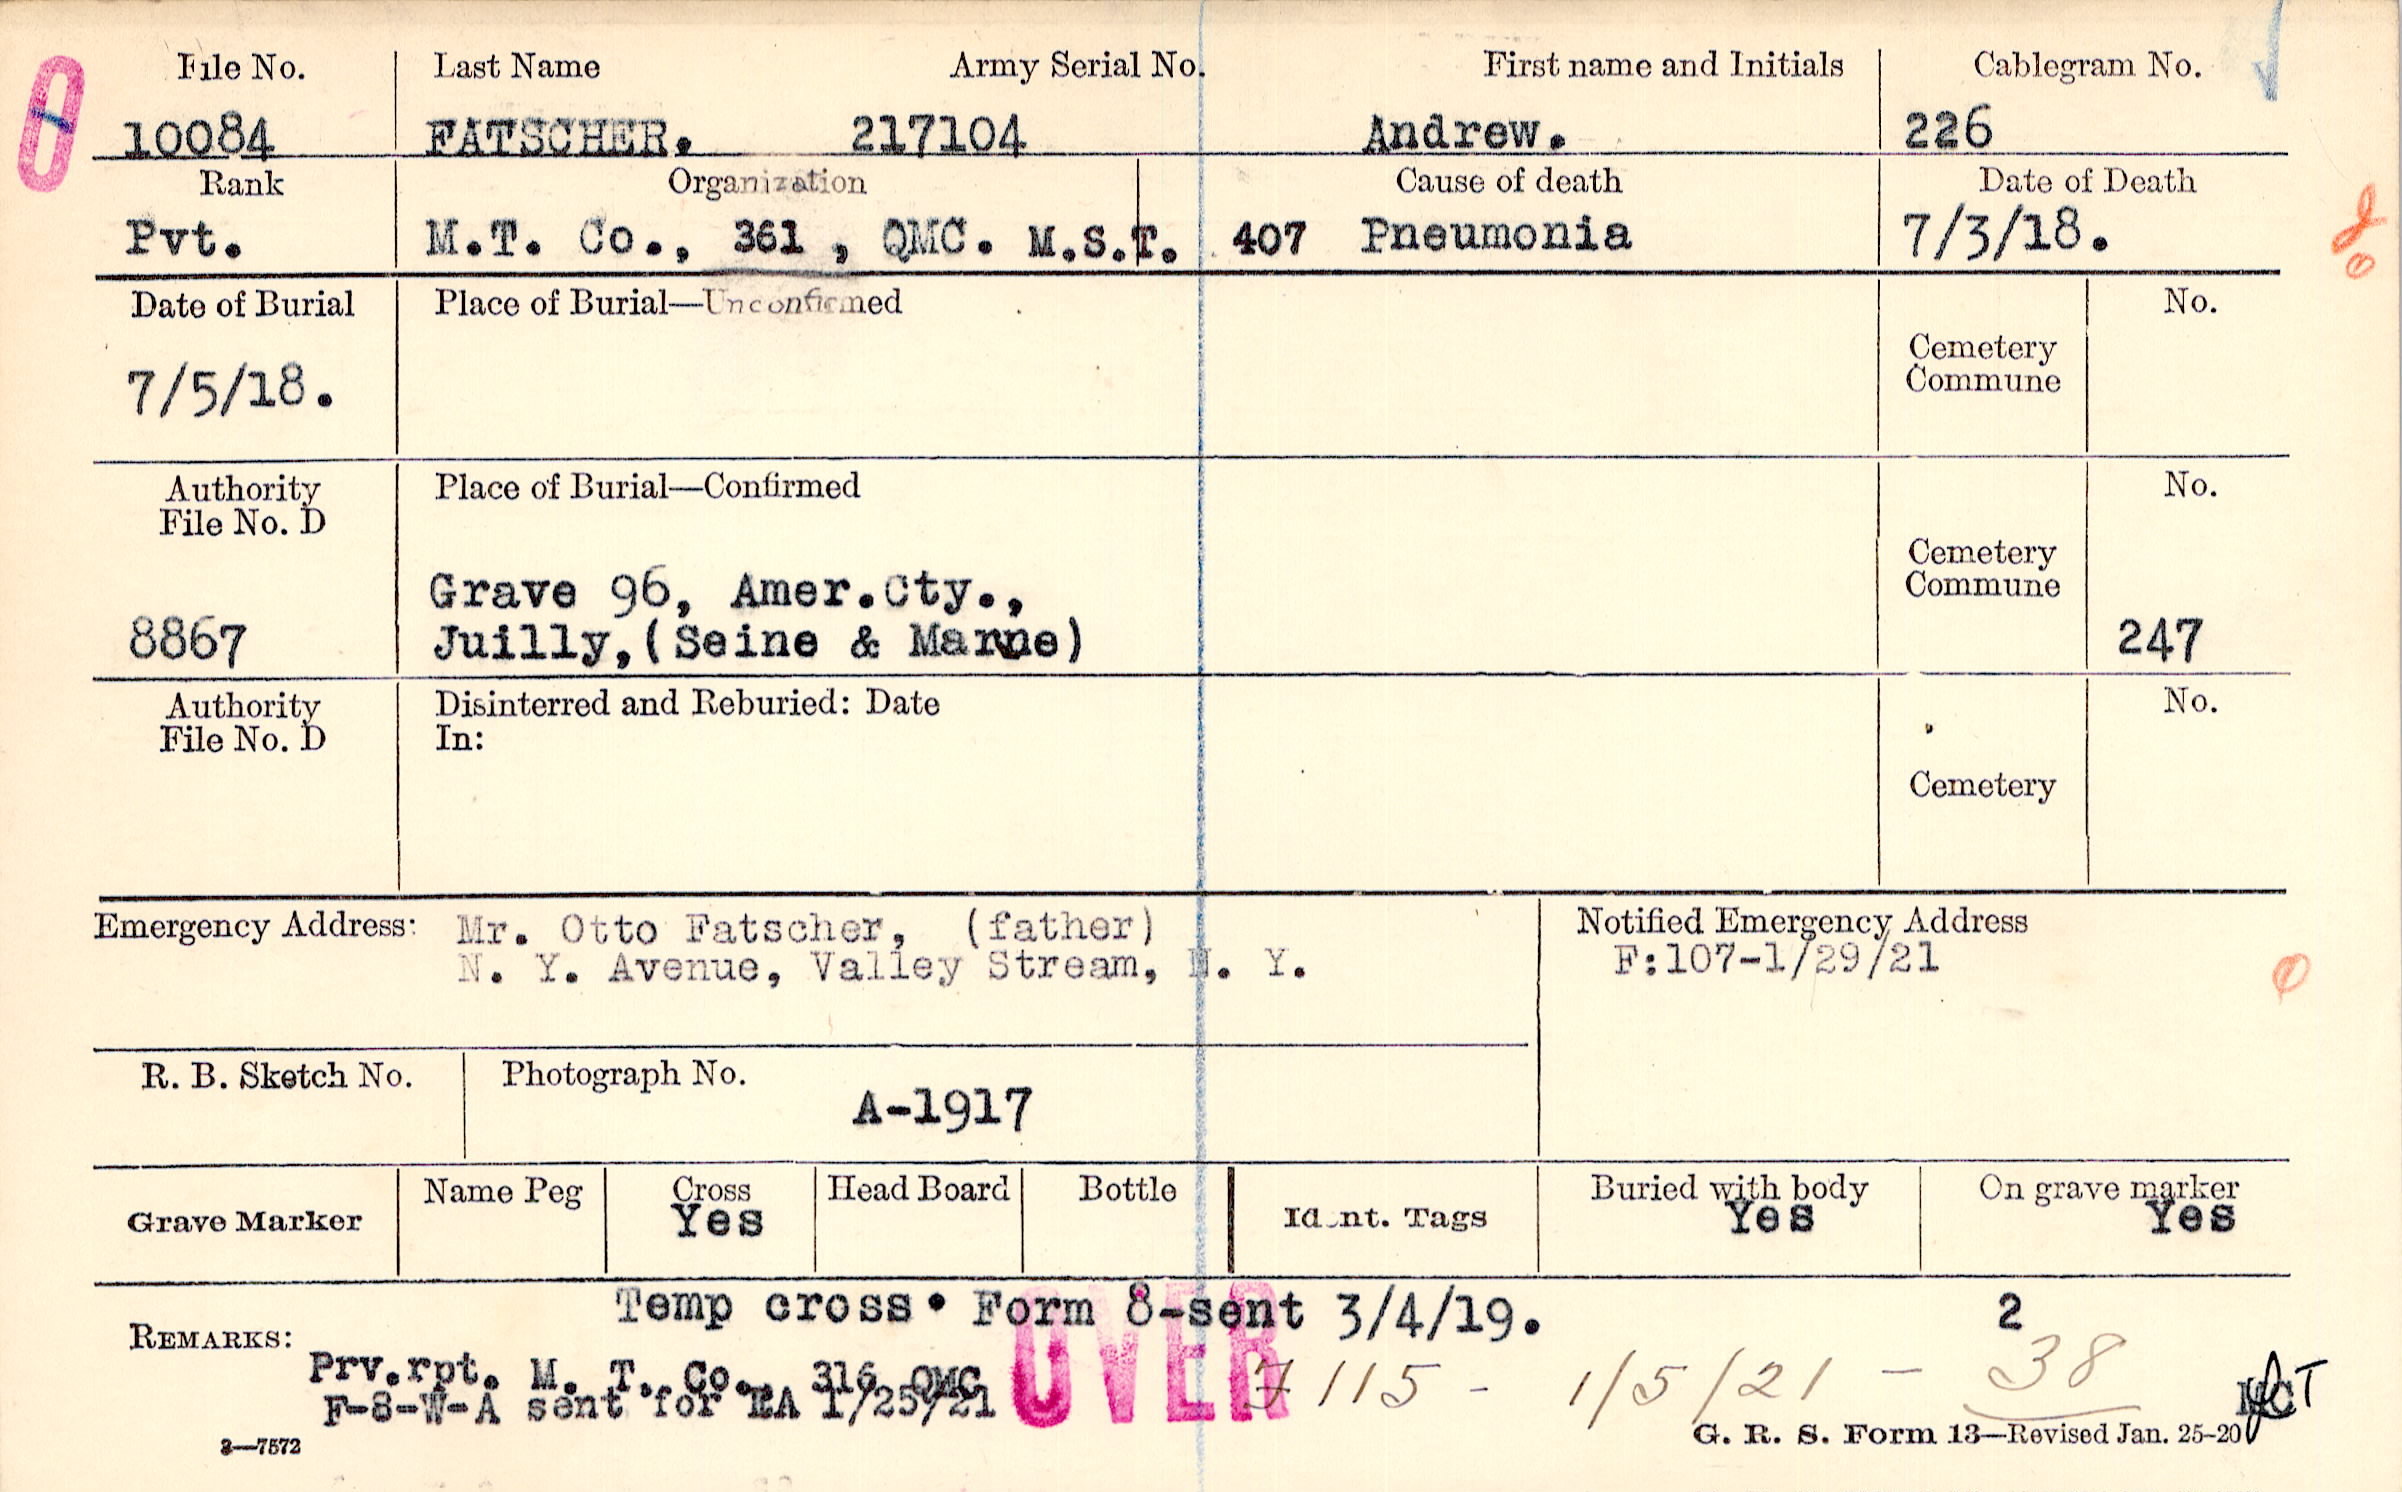 File No. Last Name Army Serial No. First name and Initials Cablegram No.
10084 FATSCHER. 217104 Andrew. 226
Rank Organization Cause of death Date of Death
Pvt. M.T. Co., 361, QMC. M.S.T. 407 Pneumonia 7/3/18.
Date of Burial Place of Burial—Unconfirmed No.
Cemetery
Commune
7/5/18.
Authority Place of Burial—Confirmed No.
File No. D
Cemetery
Commune
Grave 96, Amer.Cty.,
8867 Juilly,(Seine & Marne) 247
Authority Disinterred and Reburied: Date No.
File No. D In:
Cemetery
Emergency Address: Mr. Otto Fatscher, (father) Notified Emergency Address
N. Y. Avenue, Valley Stream, N. Y. F:107-1/29/21
R. B. Sketch No. Photograph No.
A-1917
Name Peg Cross Head Board Bottle Buried with body On grave marker
Grave Marker Yes Ident. Tags Yes Yes
Temp cross. Form 8-sent 3/4/19. 2
REMARKS:
Prv.rpt. M. T. Co. 316 QMC OVER 7115 - 1/5/21 - 38
F-8-W-A sent for EA 1/25/21
3—7572 G. R. S. Form 13—Revised Jan. 25-20